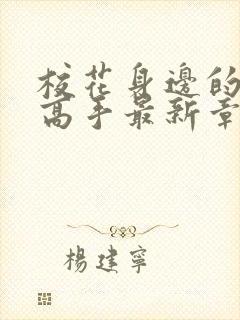 校花身邊的
高手最新章
楊建寧